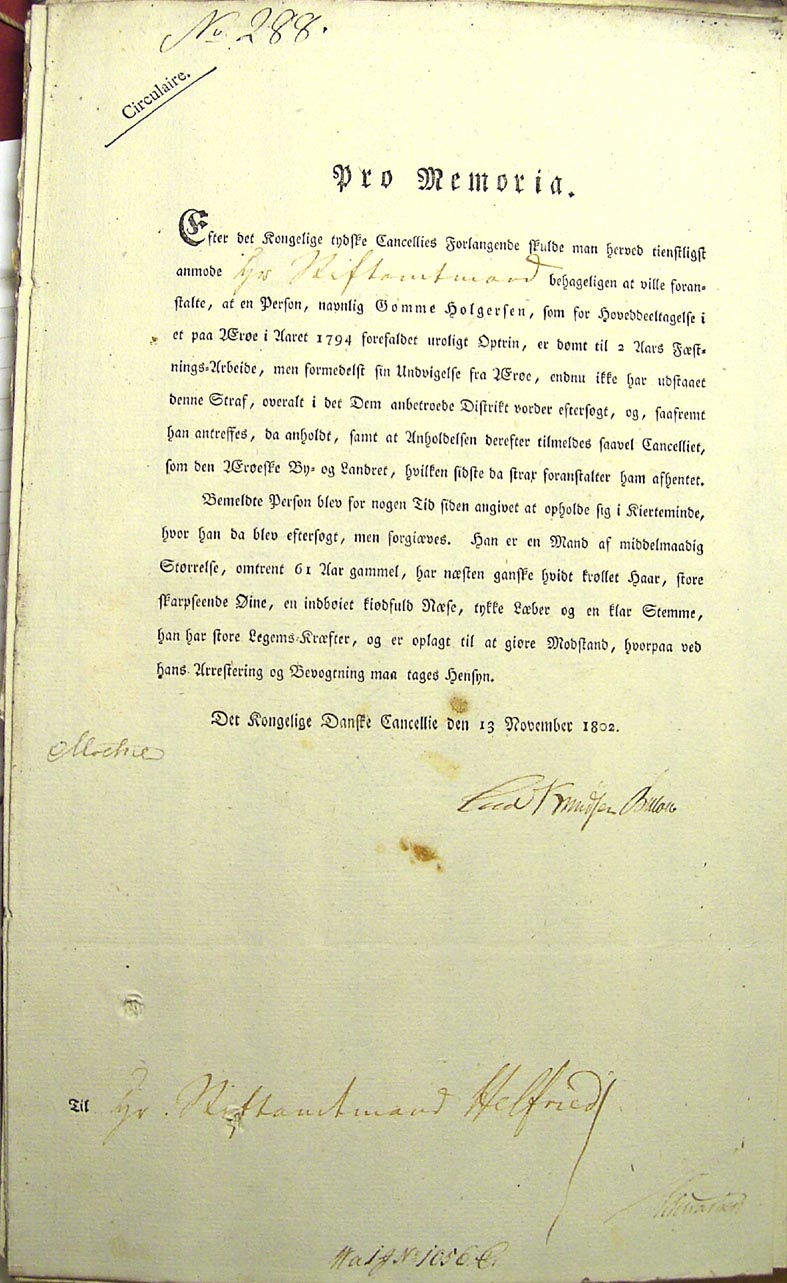 No. 288.
Circulaire.
Pro Memoria.
Efter det Kongelige tydske Cancellies Forlangende skulde man herved tienstligst
anmode Hr Stiftamtmand behageligen at ville foran=
stalte, at en Person, navnlig Gomme Holgersen, som for Hoveddeeltagelse i
et paa Ærøe i Aaret 1794 forefaldet uroligt Optrin, er dømt til 2 Aars Fæst=
nings=Arbeide, men formedelst sin Undvigelse fra Ærøe, endnu ikke har udstaaet
denne Straf, overalt i det Dem anbetroede Distrikt vorder eftersøgt, og, saafremt
han antreffes, da anholdt, samt at Anholdelsen derefter tilmeldes saavel Cancelliet,
som den Ærøeske By= og Landret, hvilken sidste da strax foranstalter ham afhentet.
Bemeldte Person blev for nogen Tid siden angivet at opholde sig i Kierteminde,
hvor han da blev eftersøgt, men forgiæves. Han er en Mand af middelmaadig
Størrelse, omtrent 61 Aar gammel, har næsten ganske hvidt krøllet Haar, store
skarpseende Øine, en indbøiet kiødfuld Næse, tykke Læber og en klar Stemme,
han har store Legems=Kræfter, og er oplagt til at giøre Modstand, hvorpaa ved
hans Arrestering og Bevogtning maa tages Hensyn.
Det Kongelige Danske Cancellie den 13 November 1802.
Knudsen
Til Hr. Stiftamtmand Helfried
No 1056